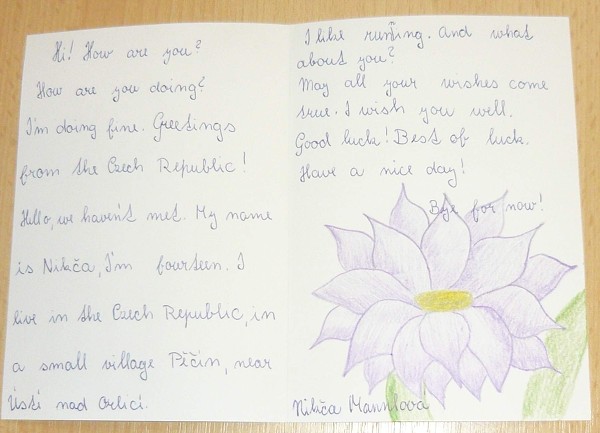 Hi! How are you?
How are you doing?
I'm doing fine. Greetings
from the Czech Republic!
Hello, we haven't met. My name
is Nikča, I'm fourteen. I
live in the Czech Republic, in
a small village Pěčín, near
Ústí nad Orlicí.
I like running. And what
about you?
May all your wishes come
true. I wish you well.
Good luck! Best of luck.
Have a nice day!
Bye for now!
Nikča